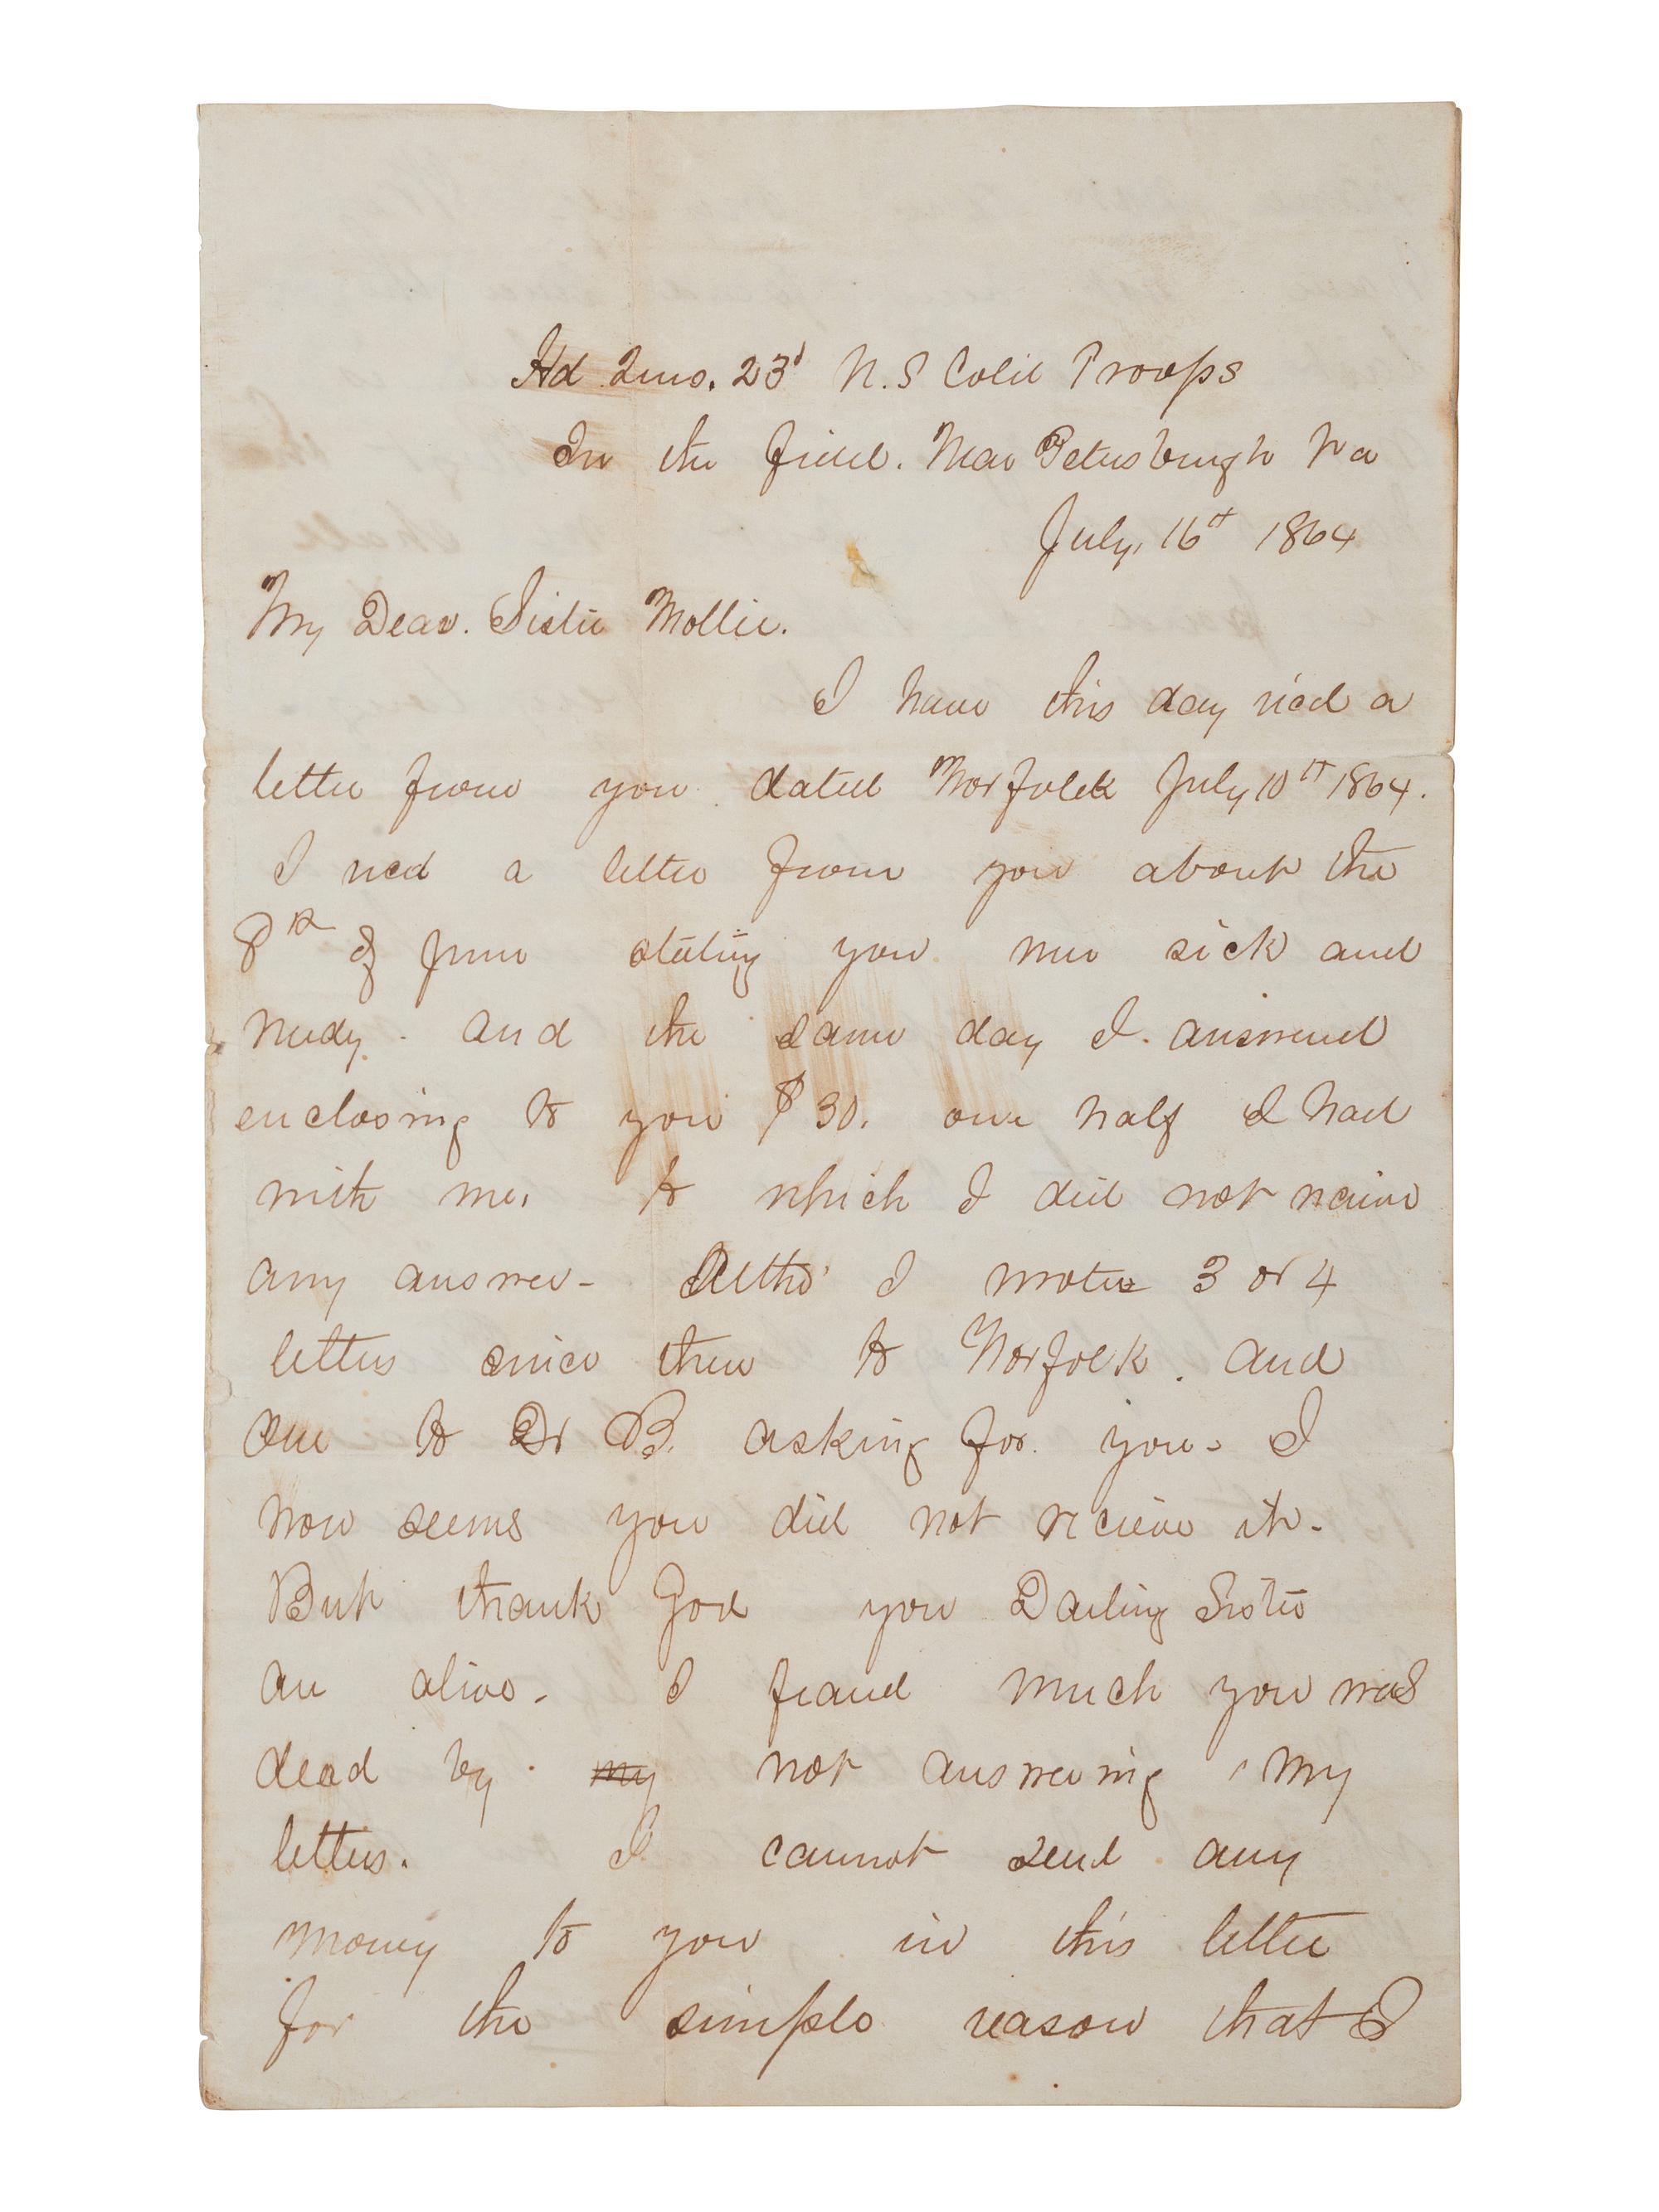 Hd Qurs. 23d U.S Cold Troops
In the field. Near Petersburgh Va
July, 16th 1864
My Dear. Sister Mollie.
I have this day ricd a
letter from you dated Norfolk July 10th 1864.
I recd a letter from you about the
8th of June stating you were sick and
needy. and the same day I. answered
enclosing to you $30. one half I had
with me. to which I did not recieve
any answer - Altho' I wrote 3 or 4
letters since then to Norfolk. and
One to Dr B. asking for. you - I
now seems you did not recieve it -
But thank God you Darling Sister
are alive - I feared much you was
dead by my not answering my
letters. I cannot send any
money to you in this letter
for the simple reason that I